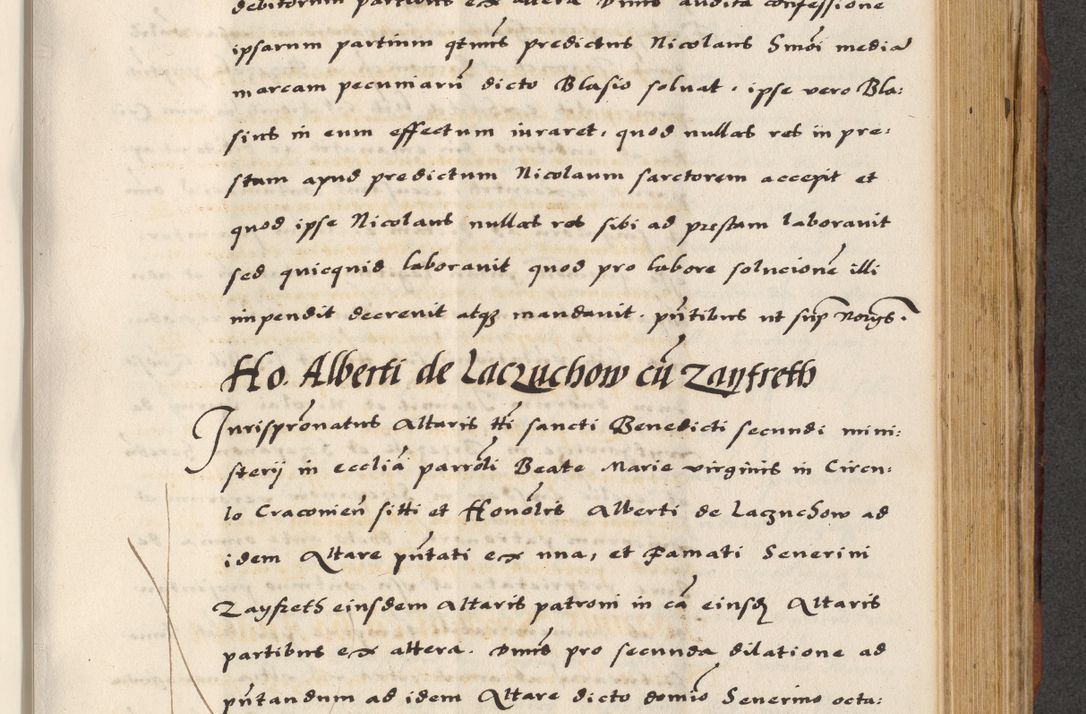 debitorum partibus ex altera Dnus audita confessione
ipsarum partium qtmus predictus Nicolaus Smōi mediā
marcam pecuniarū dicto Blasio soluat. ipse vero Bla:
sius in eum effectum iuraret, quod nullas res in pre:
stum apud predictum Nicolaum sartorem accepit et
quod ipse Nicolaus nullas res sibi ad prestam laborauit
sed quicquid laborauit quod pro labore solucionē illi
impendit decreuit atq₃ mandauit. pn̄tibus ut sup̄
Ho. Alberti de Laczuchow cū Zayfreth
Jurisprōnatus Altaris tti sancti Benedicti secundi mini:
sterij in eccliā parrōli Beate Marie virginis in Circu:
lo Cracouien̄ sitti et Honōlis Alberti de Laczuchow ad
idem Altare pn̄tati ex una, et Famati Seuerini
Zayfreth eiusdem altaris patroni in cā eiusdꝫ Altaris
partibus ex altera. Dnus pro secunda dilatione ad
pn̄tandum ad idem Altare dicto domīo Seuerino octa: